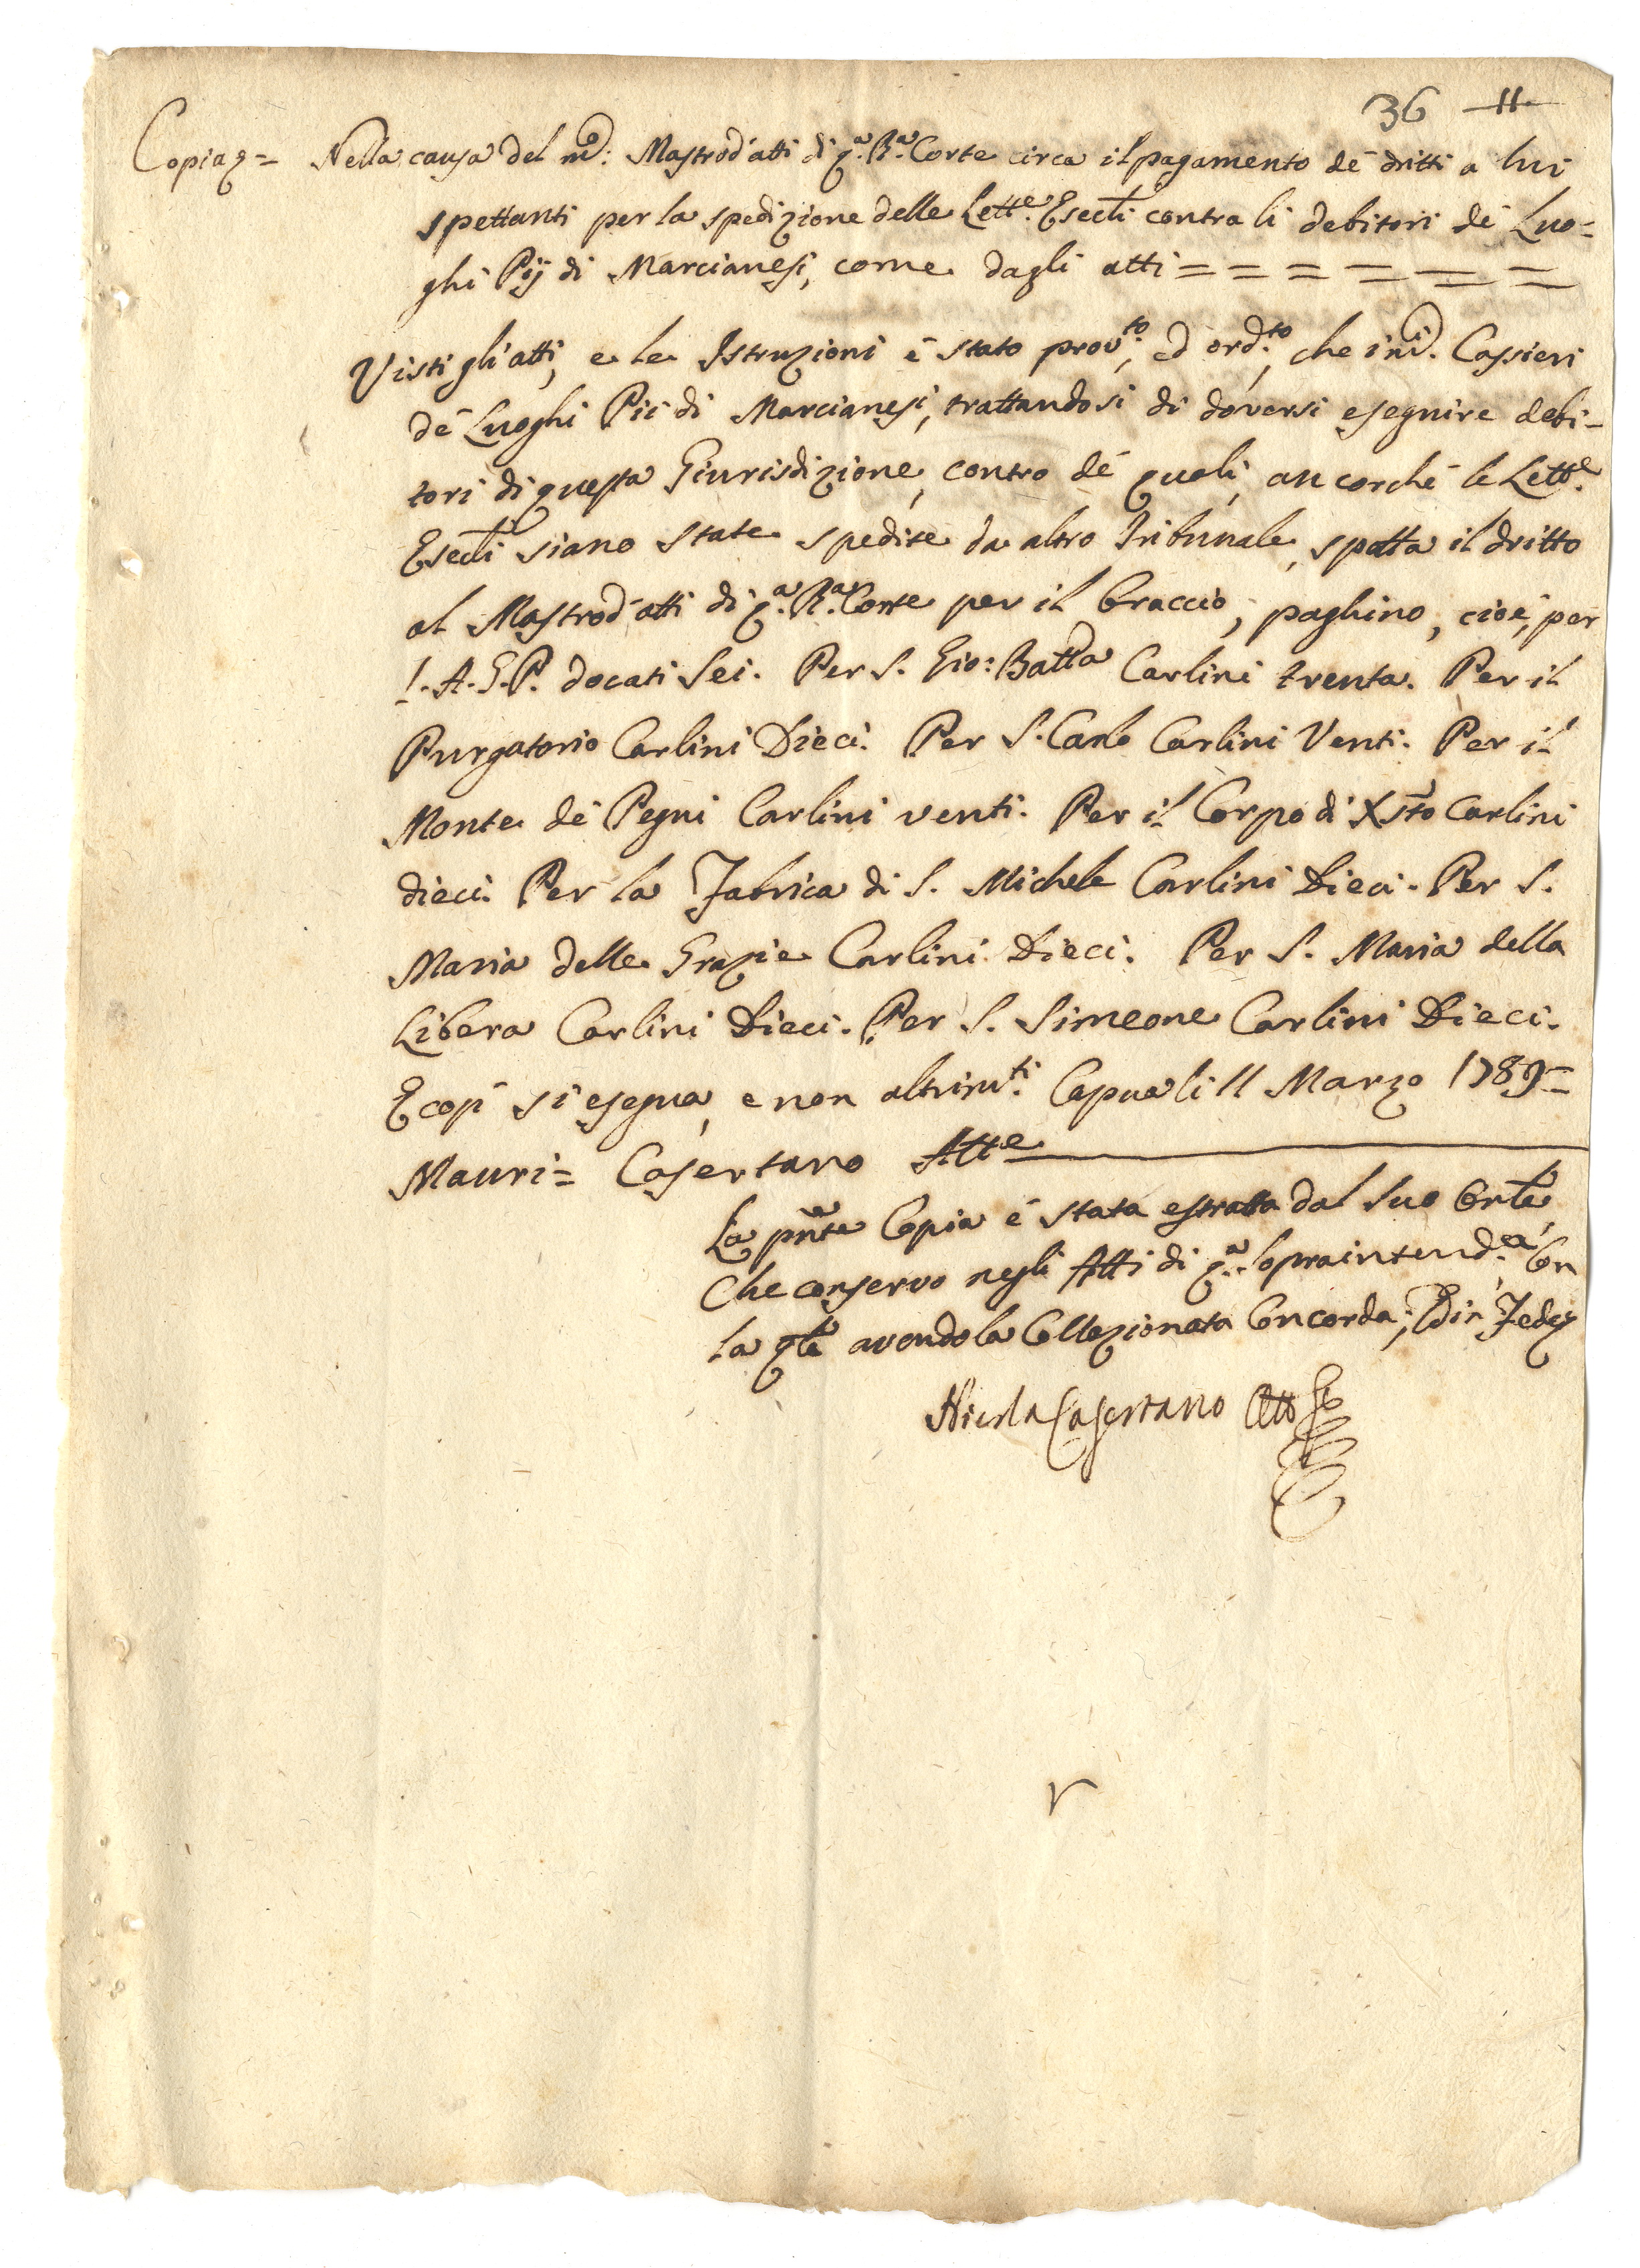 36 11
Copia = Nella causa del m.co: Mastrod'atti di q.a R.a Corte circa il pagamento de' dritti a lui
spettanti per la spedizione delle Lett.e Esecti contra li debitori de' Luo=
ghi Pij di Marcianesi, come dagli atti = = = = = = =
Visti gli atti, e le Istruzioni è stato prov.to, ed ord.to, che i m.ci Cassieri
de' Luoghi Pii di Marcianesi, trattandosi di doversi eseguire debi=
tori di questa Giurisdizione, contro de' quali, ancorché le Lett.e
Esecti siano state spedite da altro Tribunale, spetta il dritto
al Mastrod'atti di q.a R.a Corte per il braccio, paghino, cioè, per
l. A.G.P. docati Sei. Per S. Gio: Batta Carlini trenta. Per il
Purgatorio Carlini Dieci. Per S. Carlo Carlini Venti. Per il
Monte de' Pegni Carlini venti. Per il Corpo di Xsto Carlini
dieci. Per la Fabrica di S. Michele Carlini Dieci. Per S.
Maria delle Grazie Carlini Dieci. Per S. Maria della
Libera Carlini Dieci. Per S. Simeone Carlini Dieci.
E così si esegua, e non altrim.ti Capua li 11 Marzo 1789=
Mauri = Casertano Att.e
La pnte Copia è stata estratta dal suo Orle
Che conservo negli Atti di q.a Sopraintend.a, Con
la qle avendola Collazionata Concorda; Ed in Fede
Nicola Casertano Att.o